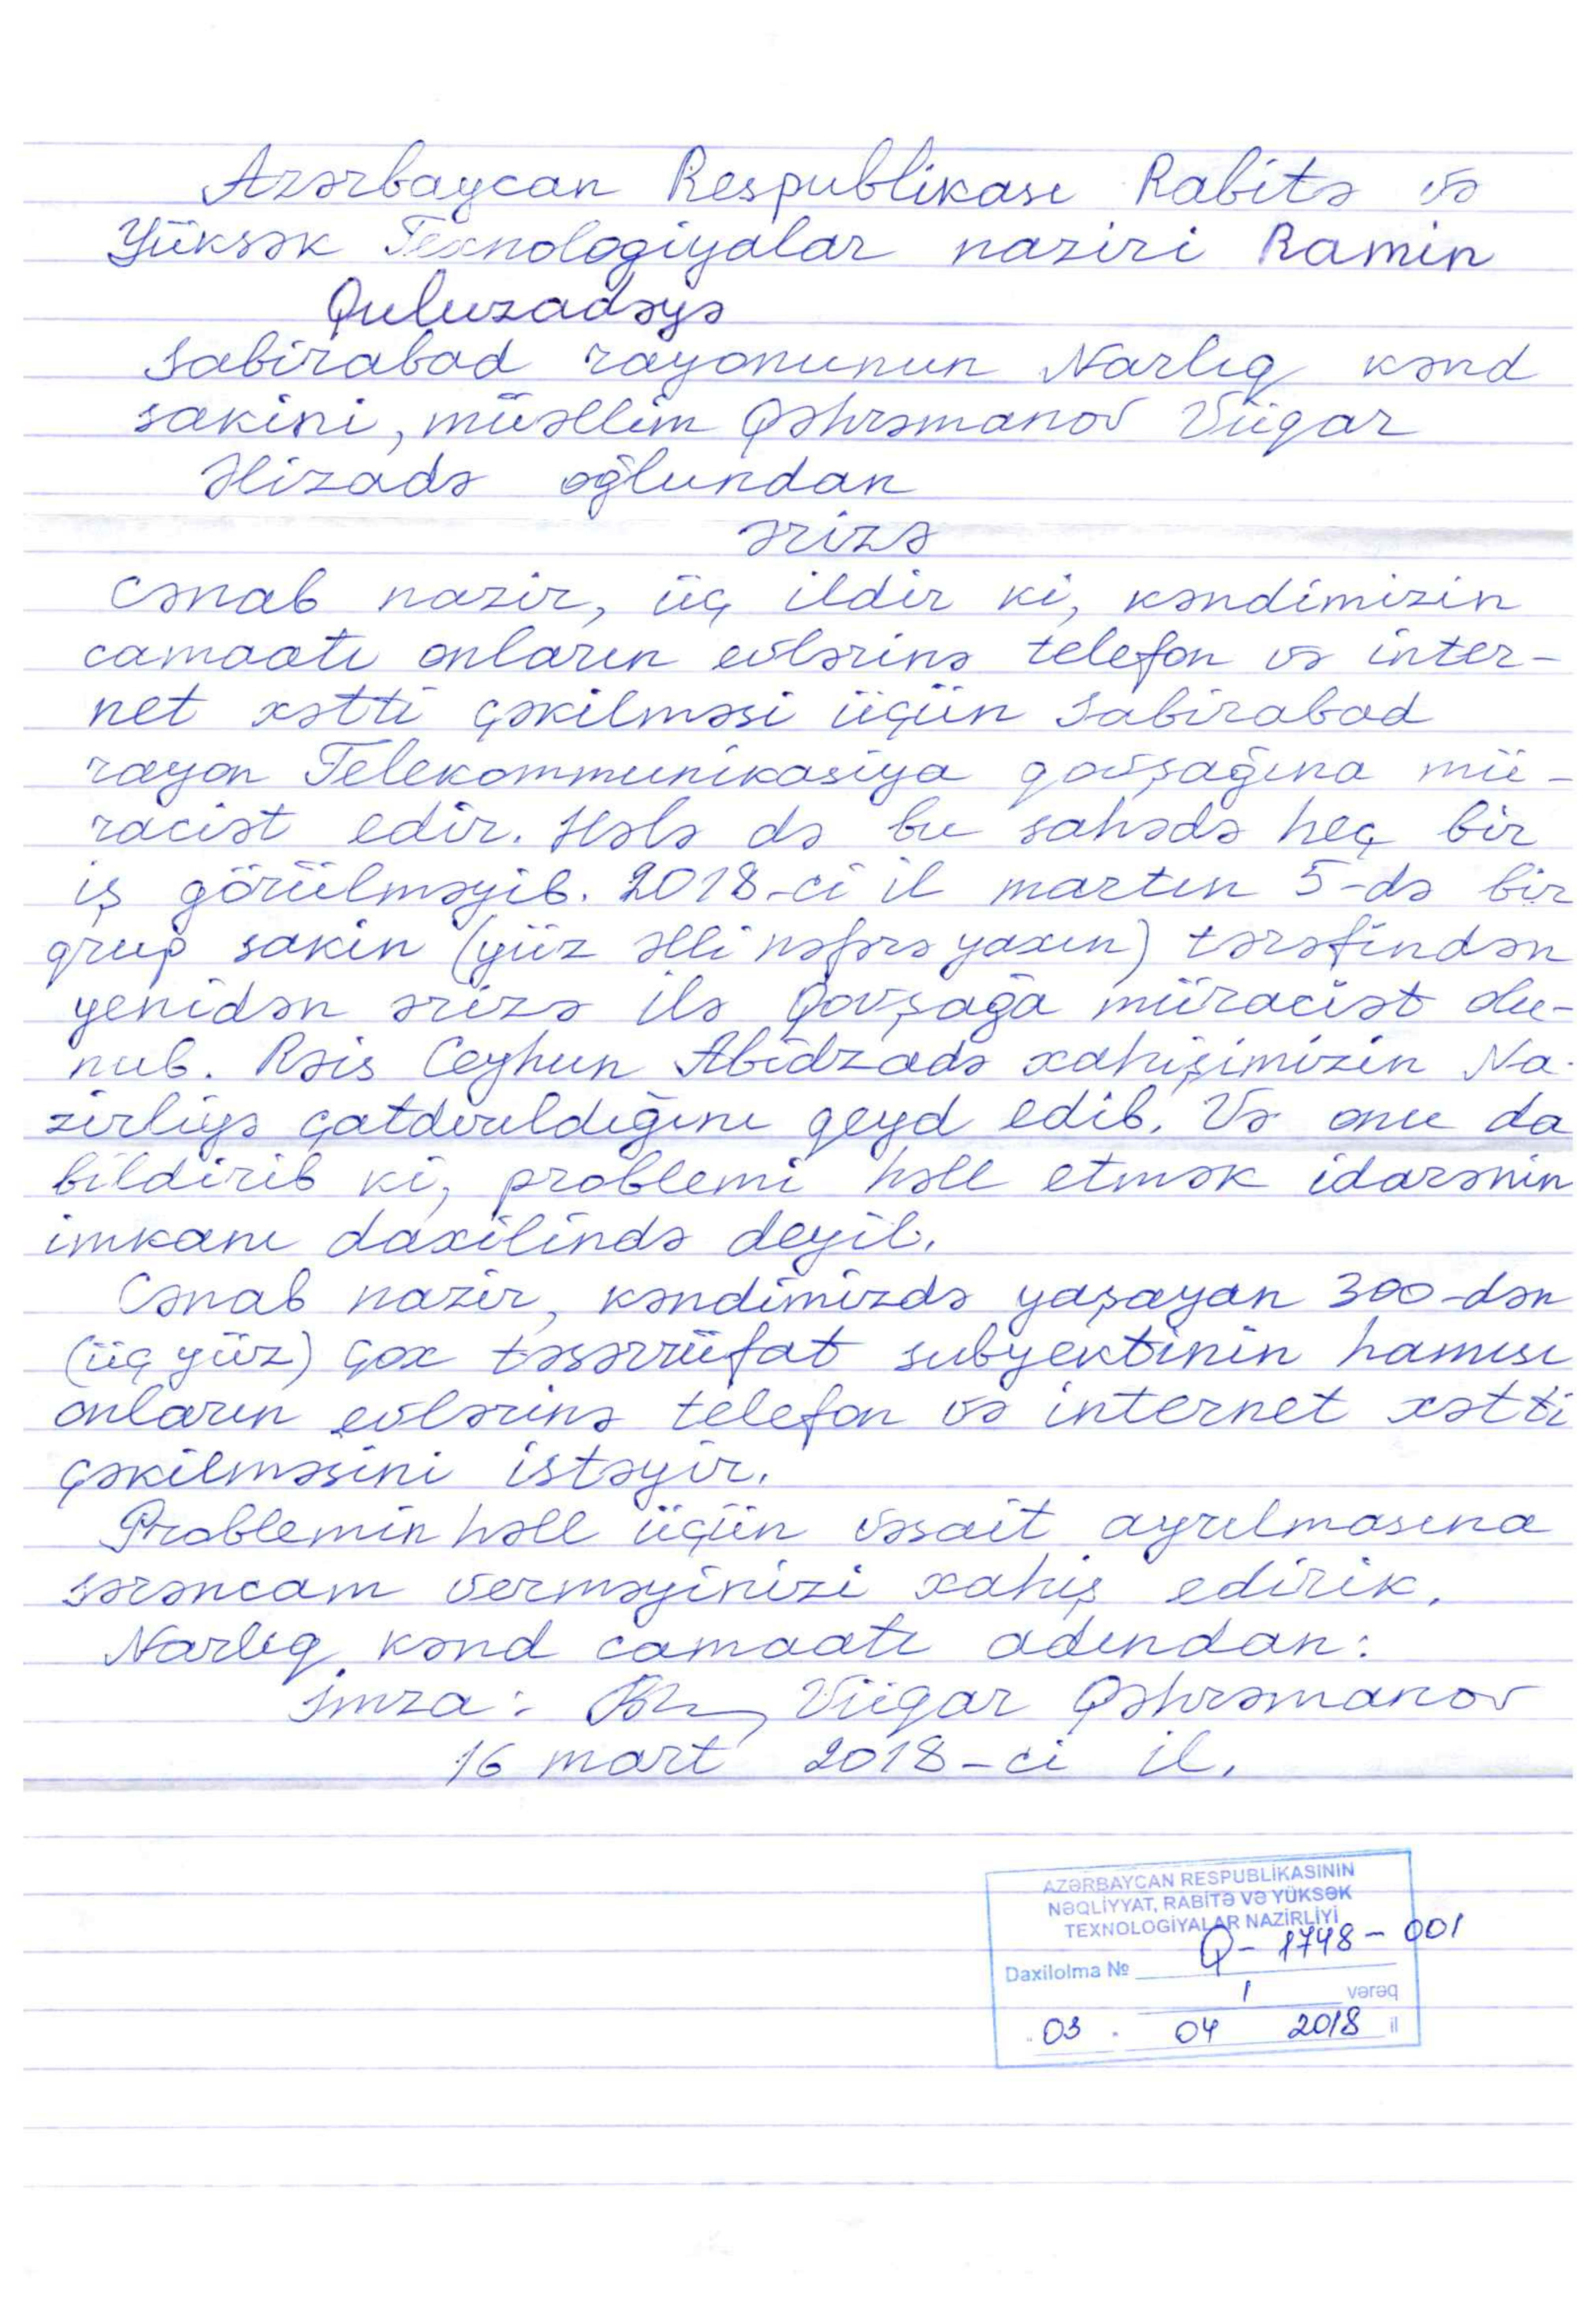 Azərbaycan Respublikası Rabitə və
Yüksək Texnologiyalar naziri Ramin
Quluzadəyə
Sabirabad rayonunun Narlıq kənd
sakini, müəllim Qəhrəmanov Vüqar
Əlizadə oğlundan
ərizə
Cənab nazir, üç ildir ki, kəndimizin
camaatı onların evlərinə telefon və inter-
net xətti çəkilməsi üçün Sabirabad
rayon Telekommunikasiya qovşağına mü-
raciət edir. Hələ də bu sahədə heç bir
iş görülməyib. 2018-ci il martın 5-də bir
qrup sakin (yüz əlli nəfərə yaxın) tərəfindən
yenidən ərizə ilə Qovşağa müraciət olu-
nub. Rəis Ceyhun Abidzadə xahişimizin Na-
zirliyə çatdırıldığını qeyd edib. Və onu da
bildirib ki, problemi həll etmək idarənin
imkanı daxilində deyil.
Cənab nazir, kəndimizdə yaşayan 300-dən
(üç yüz) çox təsərrüfat subyektinin hamısı
onların evlərinə telefon və internet xətti
çəkilməsini istəyir.
Problemin həll üçün vəsait ayrılmasına
sərəncam verməyinizi xahiş edirik.
Narlıq kənd camaatı adından:
İmza: Vüqar Qəhrəmanov
16 mart 2018-ci il.
AZƏRBAYCAN RESPUBLİKASININ
NƏQLİYYAT, RABİTƏ VƏ YÜKSƏK
TEXNOLOGİYALAR NAZİRLİYİ
Daxilolma № Q-1748-001
1 vərəq
03 04 2018 il